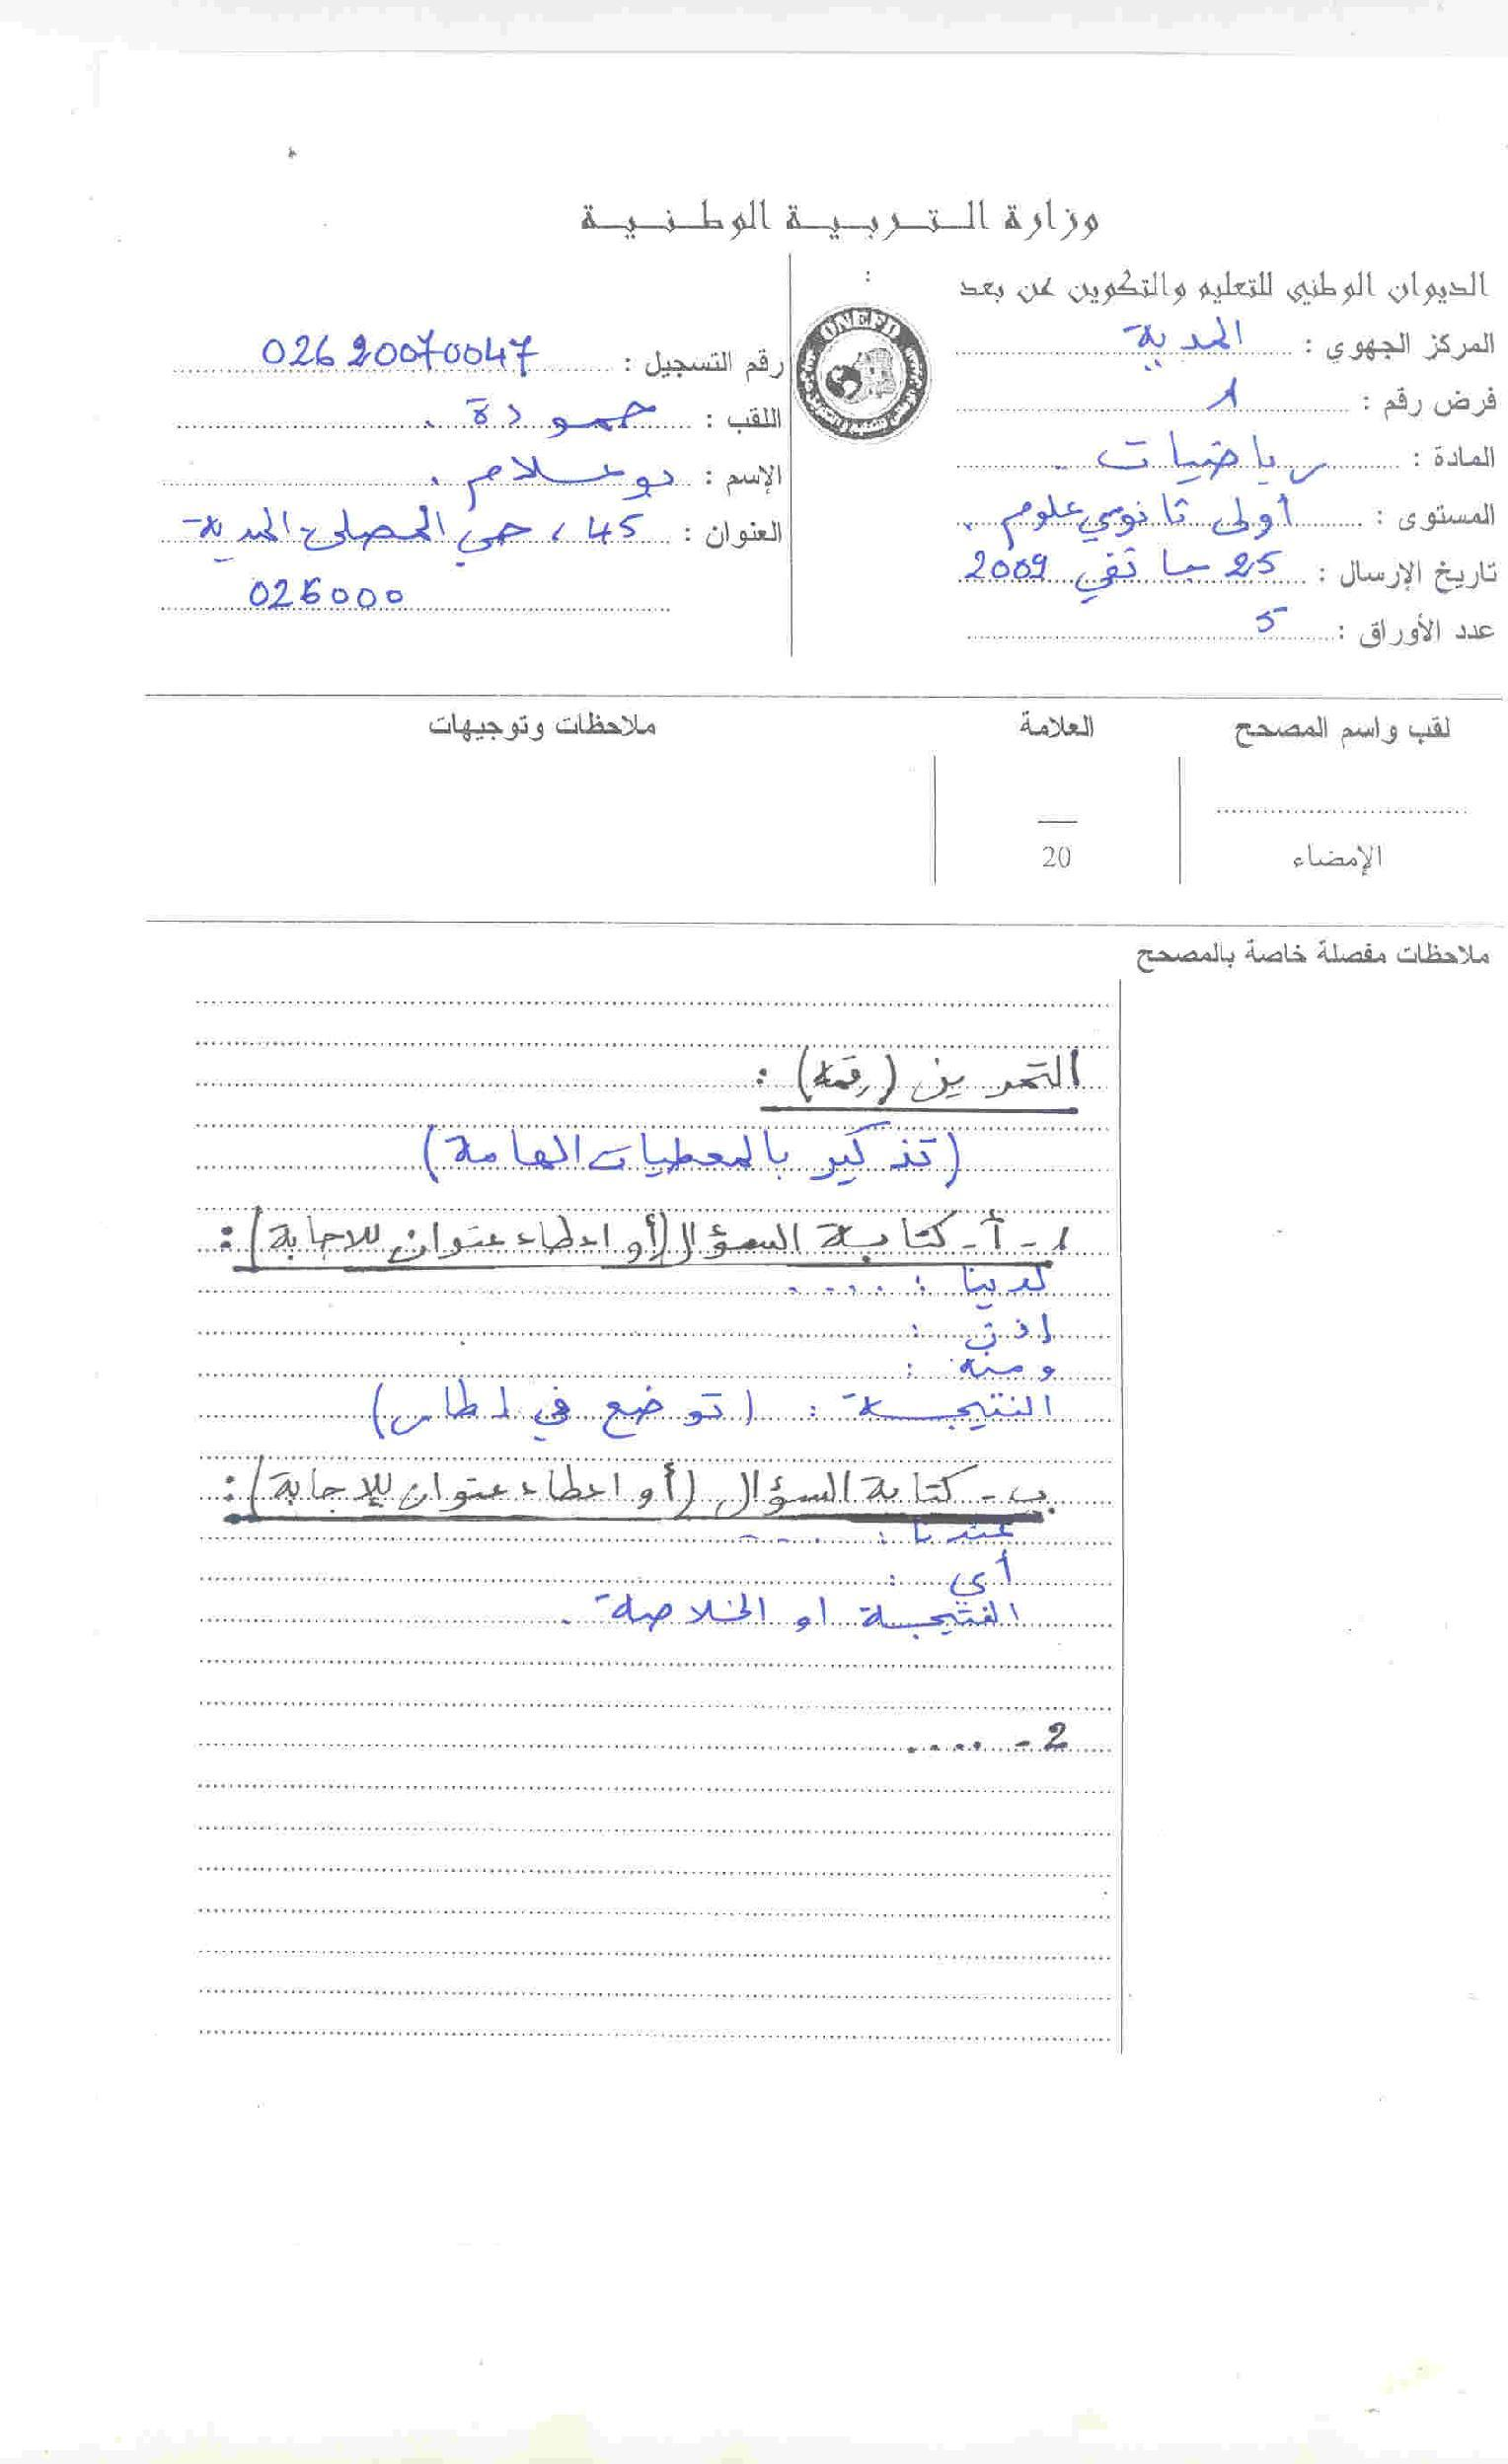 وزارة التربية الوطنية
الديوان الوطني للتعليم والتكوين عن بعد
:
المركز الجهوي : المدية
فرض رقم : 1
المادة : رياضيات .
المستوى : أولى ثانوي علوم .
تاريخ الإرسال : 25 جانفي 2009
عدد الأوراق : 5
ONEFD
رقم التسجيل : 02620070047
اللقب : حمودة .
الإسم : بوعلام .
العنوان : 45 ، حي المصلى - المدية -
026000
لقب واسم المصحح
العلامة
ملاحظات وتوجيهات
الإمضاء
20
ملاحظات مفصلة خاصة بالمصحح
التمرين (رقمه) :
(تذكير بالمعطيات الهامة)
1 - أ - كتابة السؤال (أو اعطاء عنوان للاجابة) :
لدينا : ....
اذن :
ومنه :
النتيجة : (توضع في اطار)
ب - كتابة السؤال (أو اعطاء عنوان للإجابة) :
عندنا : ....
أي :
النتيجة او الخلاصة .
2 - ....